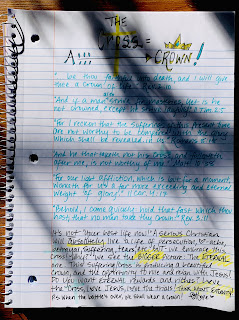 THE
CROSS =
A !!! CROWN!
"... be thou faithful unto death, and I will give
thee a crown of life." Rev. 2:10
"And if a man strive for masteries, yet is he
not crowned, except he strive lawfully." 2 Tim 2:5
"For I reckon that the sufferings of this present time
are not worthy to be compared with the glory
which shall be revealed in us." Romans 8:18
"And he that taketh not his cross, and followeth
after me, is not worthy of me." Matt 10:38
"For our light affliction, which is but for a moment,
worketh for us a far more exceeding and eternal
weight of glory" II Cor 4:17
"Behold, I come quickly: hold that fast which thou
hast, that no man take thy crown." Rev 3:11
It's not "your best life now!" A SERIOUS Christian
will
tears, are but we embrace this
cross! Why? We see the BIGGER picture. The ETERNAL
one. This suffering/cross is producing a beautiful
crown, and the opportunity to rule and reign with Jesus!
Do you want eternal rewards and riches? Love
the cross, love Jesus, love the truth, think about ETERNITY!
P.S. When the battle's over, we shall wear a crown!